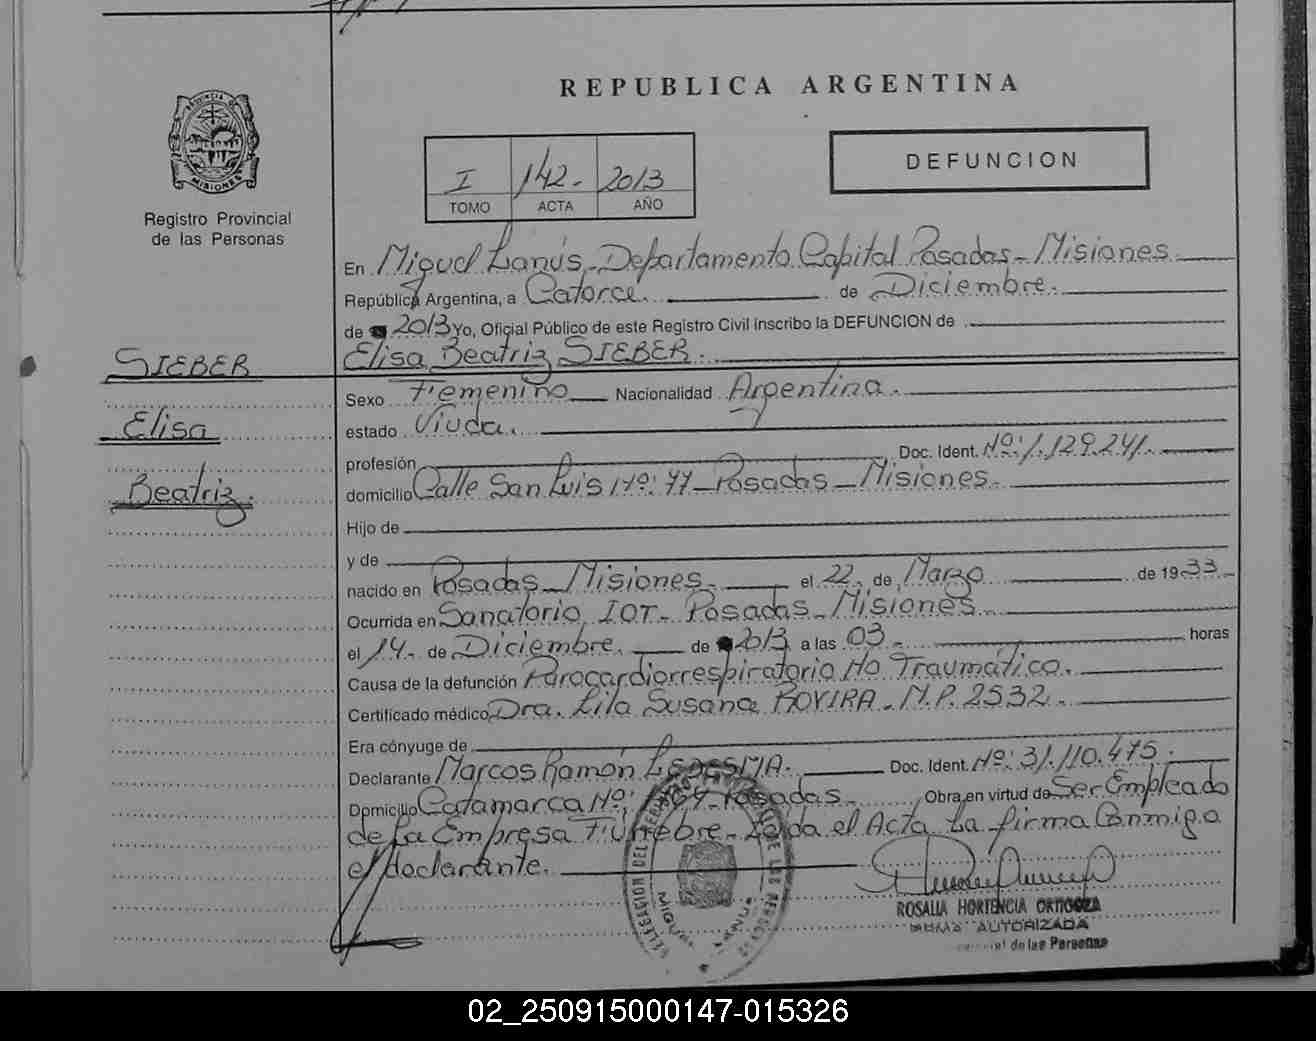 REPUBLICA ARGENTINA
PROVINCIA DE
MISIONES
Registro Provincial
de las Personas
I 142.- 2013
TOMO ACTA AÑO
DEFUNCION
En Miguel Lanús, Departamento Capital Posadas - Misiones
República Argentina, a Catorce. de Diciembre.
de 2013 Yo, Oficial Público de este Registro Civil inscribo la DEFUNCION de
Elisa Beatriz SIEBER.
SIEBER
Elisa
Beatriz.
Sexo Femenino Nacionalidad Argentina.
estado Viuda.
profesión Doc. Ident. Nº: 1.129.241.
domicilio Calle San Luis Nº: 77 - Posadas - Misiones.
Hijo de
y de
nacido en Posadas - Misiones. el 22. de Marzo de 1933
Ocurrida en Sanatorio IOT - Posadas - Misiones
el 14. de Diciembre. de 2013 a las 03. horas
Causa de la defunción Parocardiorrespiratorio No Traumático.
Certificado médico Dra. Lila Susana ROVIRA - M.P. 2532.
Era cónyuge de
Declarante Marcos Ramón LEDESMA. Doc. Ident. Nº: 31.110.475.
Domicilio Catamarca Nº: Posadas. Obra en virtud de Ser Empleado
de La Empresa Fúnebre - Leída el Acta La firma Conmigo
el declarante.
ROSALIA HORTENCIA ORTIGOZA
FIRMA AUTORIZADA
de las Personas
02_250915000147-015326